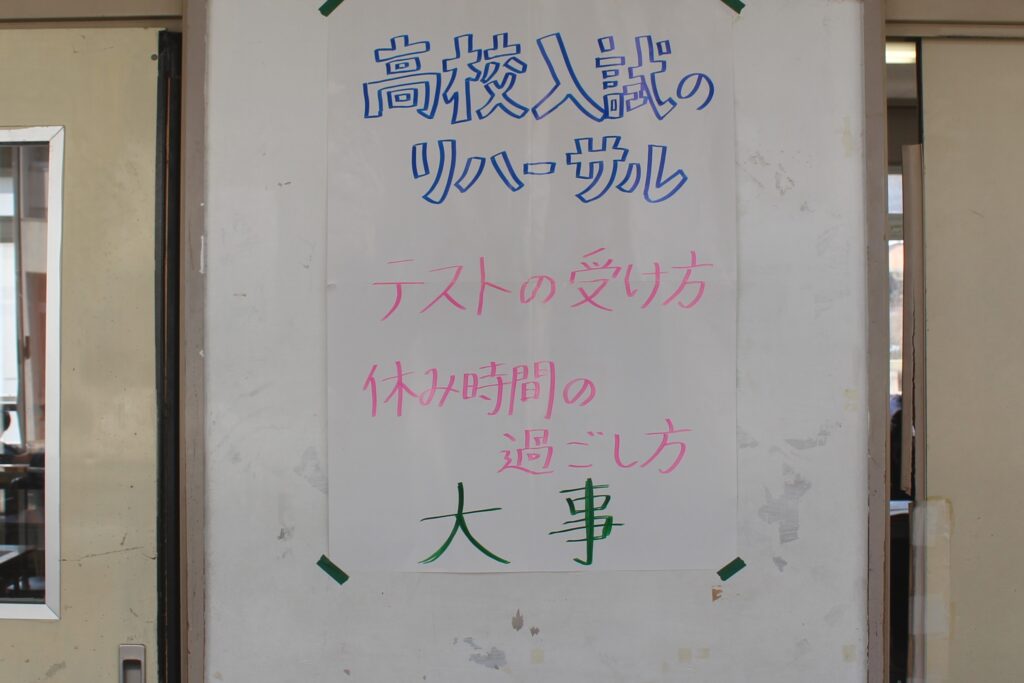 高校入試の
リハーサル
テストの受け方
休み時間の
過ごし方
大事